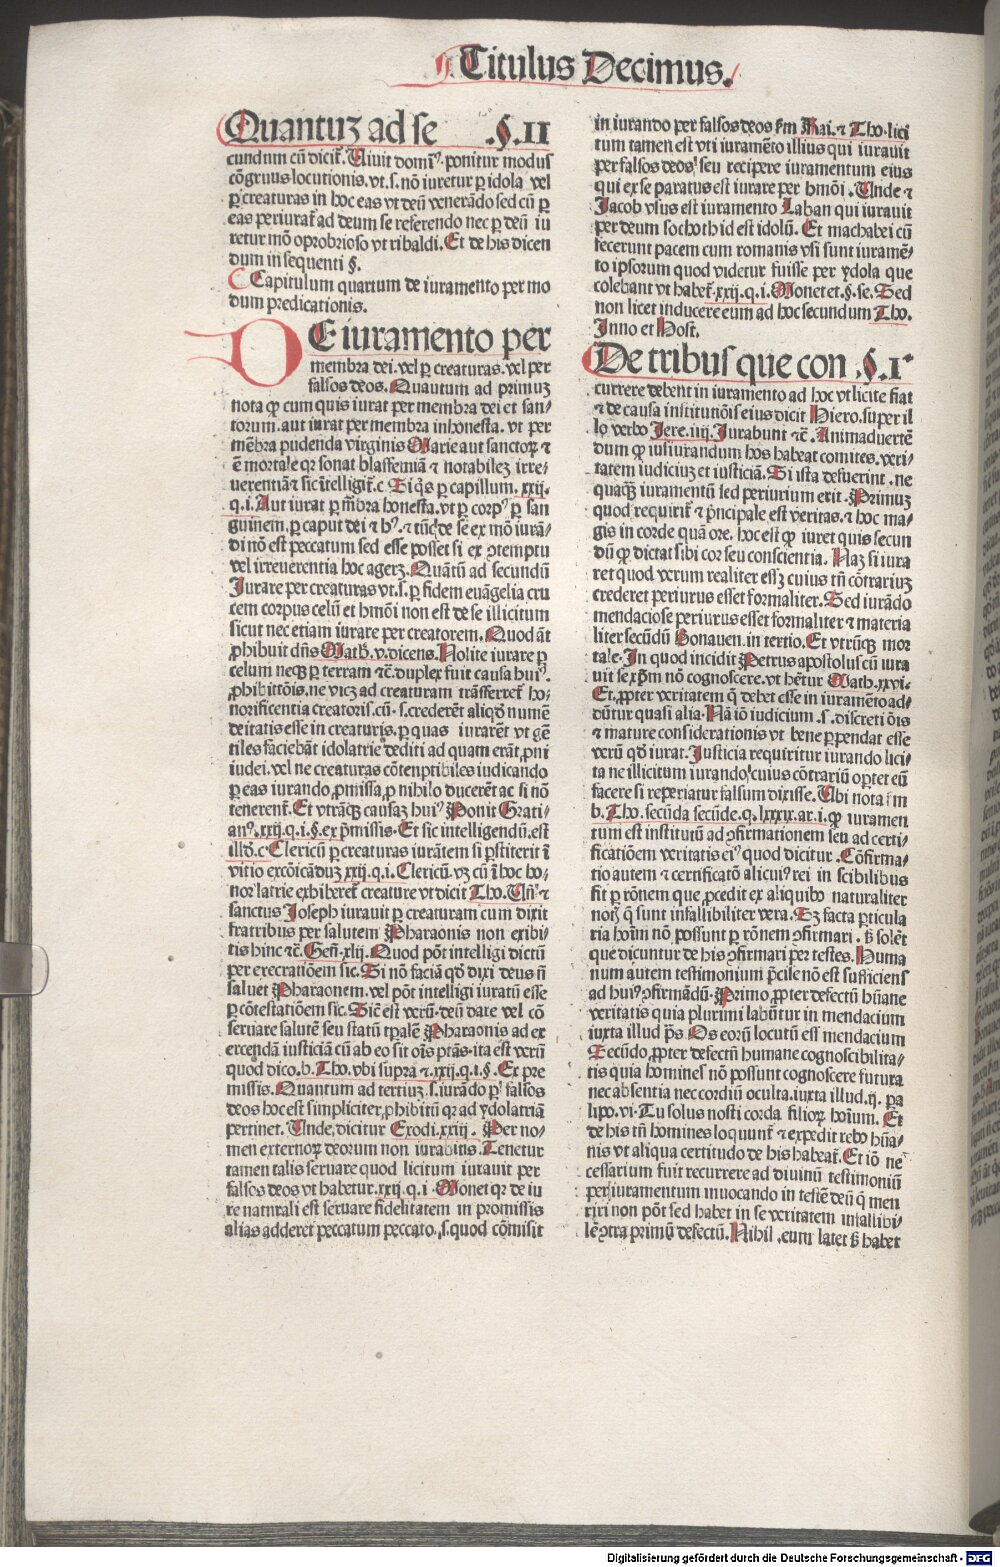 Titulus Decimus.
Quantuʒ ad se .§.II
cundum cū dicit̄. Uiuit domin᷒. ponitur modus
cōgruus locutionis. vt. s. nō iuretur ꝑ idola vel
ꝑ creaturas in hoc eas vt deū venerādo sed cū ꝑ
eas periurat̄ ad deum se referendo nec ꝑ deū iu
retur mō oprobrioso vt ribaldi. Et de his dicen
dum in sequenti §.
Capitulum quartum de iuramento per mo
dum predicationis.
DE iuramento per
membra dei. vel ꝑ creaturas. vel per
falsos deos. Quautum ad primuʒ
nota ꝙ cum quis iurat per membra dei et san⸗
torum. aut iurat per membra inhonesta. vt per
mēbra pudenda virginis Marie aut sanctoꝝ ⁊
ē mortale qꝛ sonat blasfemiā ⁊ notabileʒ irre⸗
uerentiā ⁊ sic ītelligit̄. c Si q̇s ꝑ capillum. xxij.
q. i. Aut iurat ꝑ mēbra honesta. vt ꝑ corp᷒ ꝑ san
guinem. ꝑ caput dei ⁊ h᷒. ⁊ tūc de se ex mō iurā⸗
di nō est peccatum sed esse posset si ex ꝯtemptu
vel irreuerentia hoc ageꝫ. Quātū ad secundū
Jurare per creaturas vt. s. ꝑ fidem euāgelia cru
cem corpus celū et hmōi non est de se illicitum
sicut nec etiam iurare per creatorem. Quod āt
ꝓhibuit dn̄s Math. v. dicens. Nolite iurare ꝑ
celum neqꝫ ꝑ terram ⁊c̄. duplex fuit causa hui᷒.
ꝓhibitōis. ne vicꝫ ad creaturam trāsferret̄ ho⸗
norificentia creatoris. cū. s. crederēt aliqd̄ numē
deitatis esse in creaturis. ꝑ quas iurarēt vt gē
tiles faciebāt idolatrie dediti ad quam erāt ꝓni
iudei. vel ne creaturas cōtenptibiles iudicando
ꝑ eas iurando ꝓmissa ꝓ nihilo ducerēt ac si nō
tenerent̄. Et vtrāqꝫ causaʒ hui᷒ Ponit Grati⸗
an᷒. xxij. q. i. §. ex p̄missis. Et sic intelligendū. est
illd̄. c Clericū ꝑ creaturas iurātem si ꝑstiterit ī
vitio excōicāduʒ xxij. q. i. Clericū. vꝫ cū ī hoc ho⸗
nor latrie exhiberet̄ creature vt dicit Tho. Un̄ ⁊
sanctus Joseph iurauit ꝑ creaturam cum dixit
fratribus per salutem Pharaonis non exibi⸗
tis hinc ⁊c̄. Gen̄. xlij. Quod pōt intelligi dictū
per execratiōem sic. Si nō faciā qd̄ dixi deus n̄
saluet Pharaonem. vel pōt intelligi iuratū esse
ꝑ cōtestatiōem sic. Sic̄ est verū. deū dare vel cō
seruare salutē seu statū tp̄alē Pharaonis ad ex
ercendā iusticiā cū ab eo sit oīs ptās. ita est verū
quod dico. b. Tho. vbi supra ⁊. xxij. q. i. §. Ex pre
missis. Quantum ad tertiuʒ. s. iurādo ꝑ falsos
deos hoc est simpliciter ꝓhibitū qꝛ ad ydolatriā
pertinet. Unde dicitur Exodi. xxiij. Per no⸗
men externoꝝ deorum non iurabitis. Tenetur
tamen talis seruare quod licitum iurauit per
falsos deos vt habetur. xxij. q. i. Monet qꝛ de iu
re naturali est seruare fidelitatem in promissis
alias adderet peccatum peccato. s. quod cōmisit
in iurando per falsos deos s̄m Rai. ⁊ Tho. lici
tum tamen est vti iuramēto illius qui iurauit
per falsos deos seu recipere iuramentum eius
qui ex se paratus est iurare per hmōi. Unde ⁊
Jacob vsus est iuramento Laban qui iurauit
per deum sochoth id est idolū. Et machabei cū
fecerunt pacem cum romanis vsi sunt iuramē⸗
to ipsorum quod videtur fuisse per ydola que
colebant vt habet̄. xxij. q. i. Monet et. §. se. Sed
non licet inducere eum ad hoc secundum Tho.
Inno et Host.
De tribus que con .§.I
currere debent in iuramento ad hoc vt licite fiat
⁊ de causa institutiōis eius dicit Hiero. super il
lo verbo Jere. iiij. Jurabunt ⁊c̄. Animaduertē
dum ꝙ iusiurandum hos habeat comites. veri⸗
tatem iudiciuʒ et iusticiā. Si ista defuerint. ne
quaqꝫ iuramentū sed periurium erit. Primuʒ
quod requirit̄ ⁊ pͥncipale est veritas. ⁊ hoc ma⸗
gis in corde quā ore. hoc est ꝙ iuret quis secun
dū ꝙ dictat sibi cor seu conscientia. Naʒ si iura
ret quod verum realiter esseꝫ cuius tn̄ cōtrariuʒ
crederet periurus esset formaliter. Sed iurādo
mendaciose periurus esset formaliter ⁊ materia
liter secūdū Bonauen. in tertio. Et vtrūqꝫ mor
tale. In quod incidit Petrus apostolus cū iura
uit se xp̄m nō cognoscere. vt hētur Math. xxvi.
Et ꝓpter veritatem q̄ debet esse in iuramēto ad⸗
dūtur quasi alia. Nā iō iudicium. s. discretiōis
⁊ mature considerationis vt bene ꝑpendat esse
verū qd̄ iurat. Justicia requiritur iurando lici⸗
ta ne illicitum iurando cuius cōtrariū oꝑtet eū
facere si reperiatur falsum dixisse. Ubi nota s̄m
b. Tho. secūda secūde. q. lxxxix. ar. i. ꝙ iuramen
tum est institutū ad ꝯfirmationem seu ad certi⸗
ficatiōem veritatis ei᷒ quod dicitur. Cōfirma⸗
tio autem ⁊ certificatō alicui᷒ rei in scibilibus
fit ꝑ rōnem que ꝓcedit ex aliquibo naturaliter
notꝭ q̄ sunt infallibiliter vera. Sꝫ facta ꝑticula
ria hoīm nō possunt ꝑ rōnem ꝯfirmari. ꝫ solēt
que dicuntur de his ꝯfirmari per testes. Huma
num autem testimonium p̄cile nō est sufficiens
ad hui᷒ ꝯfirmādū. Primo ꝓpter defectū hūane
veritatis quia plurimi labūtur in mendacium
iuxta illud ps̄. Os eorū locutū est mendacium
Secūdo ꝓpter defectū humane cognoscibilita⸗
tis quia homines nō possunt cognoscere futura
nec absentia nec cordiū occulta. iuxta illud. ij. pa
lipo. vi. Tu solus nosti corda filioꝝ hoīum. Et
de his tn̄ homines loquunt̄ ⁊ expedit rebo hūa⸗
nis vt aliqua certitudo de his habeat̄. Et iō ne
cessarium fuit recurrere ad diuinū testimoniū
per iuramentum inuocando in testē deū q̄ men
tiri non pōt sed habet in se veritatem infallibi⸗
lē ꝯtra primū defectū. Nihil. eum latet ꝫ habet
Digitalisierung gefördert durch die Deutsche Forschungsgemeinschaft - DFG